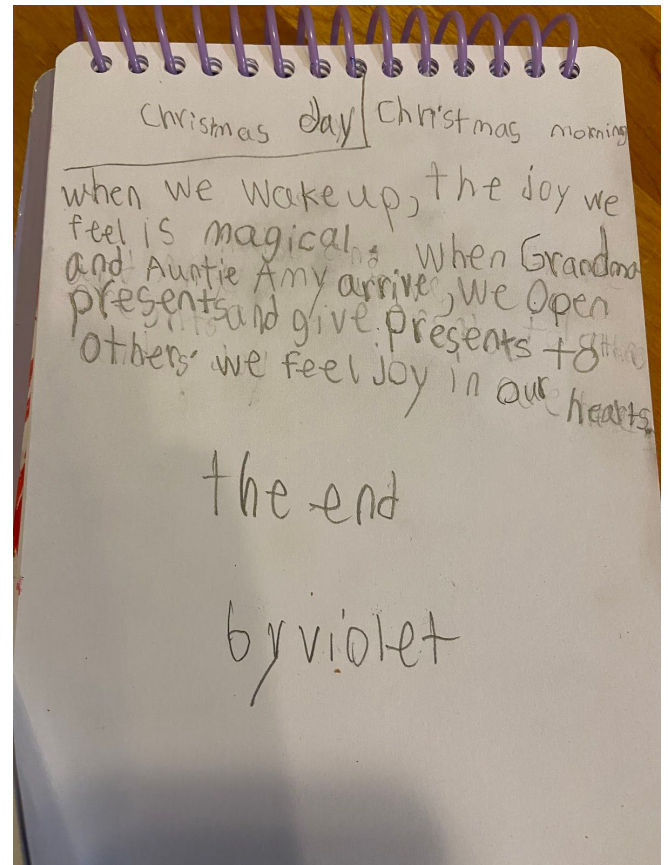 Chrismas day | Christmas morning
when we wake up, the joy we
feel is magical. when Grandma
and Auntie Amy arrive, we Open
presents and give presents to
others. we feel joy in our hearts.
the end
by violet